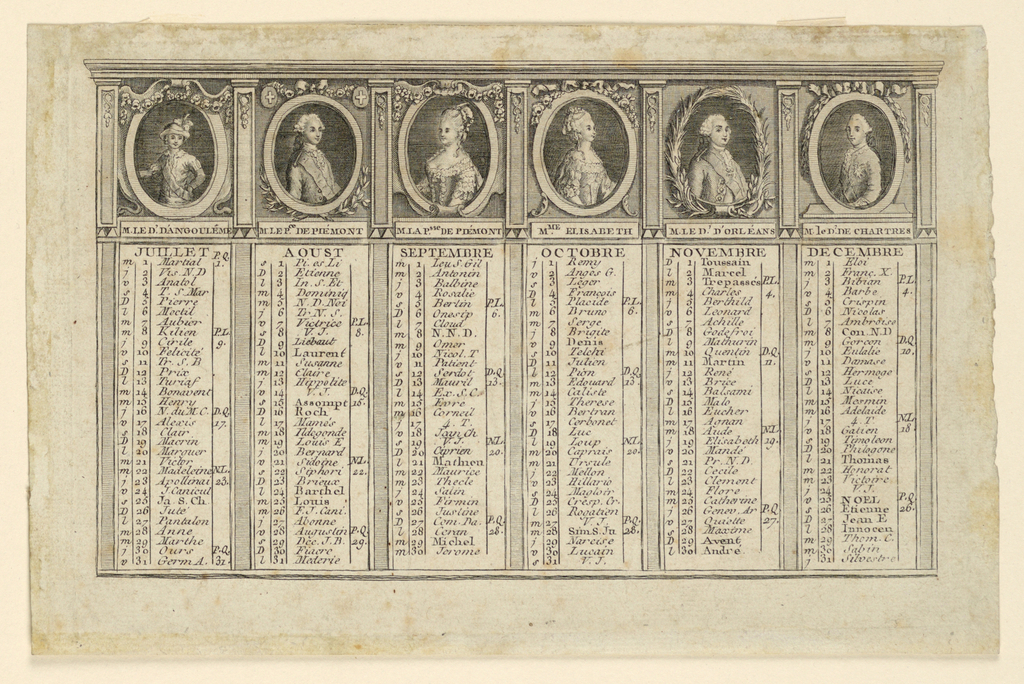 M. LE D. D'ANGOULÊME
M. LE P.ce DE PIÉMONT
M. LA P.sse DE PIÉMONT
M.ME ELISABETH
M. LE D. D'ORLÉANS
M. le D. DE CHARTRES
JUILLET P.Q.
m 1 Martial 1.
m 2 Vis. N.D
j 3 Anatol
s 4 T. S. Mar
D 5 Pierre
l 6 Moctil
m 7 Aubier
m 8 Kilien P.L.
j 9 Cirile 9.
v 10 Félicité
s 11 Tr. S. B
D 12 Prix
l 13 Turiaf
m 14 Bonavent
m 15 Henry
j 16 N. du M. C. D.Q.
v 17 Alexis 17.
s 18 Clair
D 19 Macrin
l 20 Marguer
m 21 Victor
m 22 Madeleine N.L.
j 23 Apollinai 23.
v 24 J. Canicul
s 25 Ja. S. Ch
D 26 Jute
l 27 Pantalon
m 28 Anne
m 29 Marthe
j 30 Ours P.Q.
v 31 Germ A. 31.
AOUST
s 1 Pi. es Li
D 2 Etienne
l 3 In. S. Et
m 4 Dominiq
m 5 N. D. Nei
j 6 Tr. N. S.
v 7 Victrice P.L.
s 8 V. J. 8.
D 9 Liebaut
l 10 Laurent
m 11 Susanne
m 12 Claire
j 13 Hippolite
v 14 V. J. D.Q.
s 15 Assompt 15.
D 16 Roch
l 17 Mamès
m 18 Ildegonde
m 19 Louis E
j 20 Bernard
v 21 Sidoine N.L.
s 22 Siphori 22.
D 23 Brieux
l 24 Barthel
m 25 Louis
m 26 F. J. Cani.
j 27 Abonne
v 28 Augustin P.Q.
s 29 Déc. J. B. 29.
D 30 Fiacre
l 31 Mederic
SEPTEMBRE
m 1 Leu. S. Gil
m 2 Antonin
j 3 Balbine
v 4 Rosalie
s 5 Bertin P.L.
D 6 Onesip 6.
l 7 Cloud
m 8 N. N. D.
m 9 Omer
j 10 Nicol. T
v 11 Patient
s 12 Serdot D.Q.
D 13 Mauril 13.
l 14 Ex. S. C.
m 15 Evre
m 16 Corneil
j 17 4. T.
v 18 Jan. Ch
s 19 V. J. N.L.
D 20 Ciprien 20.
l 21 Mathieu
m 22 Maurice
m 23 Thecle
j 24 Salin
v 25 Firmin
s 26 Justine
D 27 Com. Da. P.Q.
l 28 Ceran 28.
m 29 Michel
m 30 Jerome
OCTOBRE
j 1 Remy
v 2 Anges G.
s 3 Leger
D 4 François
l 5 Placide P.L.
m 6 Bruno 6.
m 7 Serge
j 8 Brigite
v 9 Denis
s 10 Telchi
D 11 Julien
l 12 Pion D.Q.
m 13 Edouard 13.
m 14 Caliste
j 15 Therese
v 16 Bertran
s 17 Cerbonet
D 18 Luc
l 19 Loup N.L.
m 20 Caprais 20.
m 21 Ursule
j 22 Mellon
v 23 Hillario
s 24 Magloir
D 25 Crésp. Cr.
l 26 Rogatien
m 27 V. J. P.Q.
m 28 Sim S. Ju 28.
j 29 Narcise
v 30 Lucain
s 31 V. J.
NOVEMBRE
D 1 Toussain
l 2 Marcel
m 3 Trepassés P.L.
m 4 Charles 4.
j 5 Berthild
v 6 Leonard
s 7 Achille
D 8 Godefroi
l 9 Mathurin
m 10 Quentin D.Q.
m 11 Martin 11.
j 12 René
v 13 Brice
s 14 Balsami
D 15 Malo
l 16 Eucher
m 17 Agnan
m 18 Aude N.L.
j 19 Elisabeth 19.
v 20 Mande
s 21 Pr. N. D.
D 22 Cecile
l 23 Clement
m 24 Flore
m 25 Catherine
j 26 Genev. Ar P.Q.
v 27 Quiette 27.
s 28 Maxime
D 29 Avent
l 30 André
DECEMBRE
m 1 Eloi
m 2 Franç. X.
j 3 Bibian P.L.
v 4 Barbe 4.
s 5 Crispin
D 6 Nicolas
l 7 Ambroise
m 8 Con. N. D
m 9 Gorgon D.Q.
j 10 Eulalie 10.
v 11 Damase
s 12 Hermoge
D 13 Luce
l 14 Nicaise
m 15 Mesmin
m 16 Adelaide
j 17 4. T N.L.
v 18 Gatien 18.
s 19 Timoleon
D 20 Philogone
l 21 Thomas
m 22 Honorat
m 23 Victoire
j 24 V. J.
v 25 NOEL P.Q.
s 26 Etienne 26.
D 27 Jean E
l 28 Innocen
m 29 Thom. C.
m 30 Sabin
j 31 Silvestre